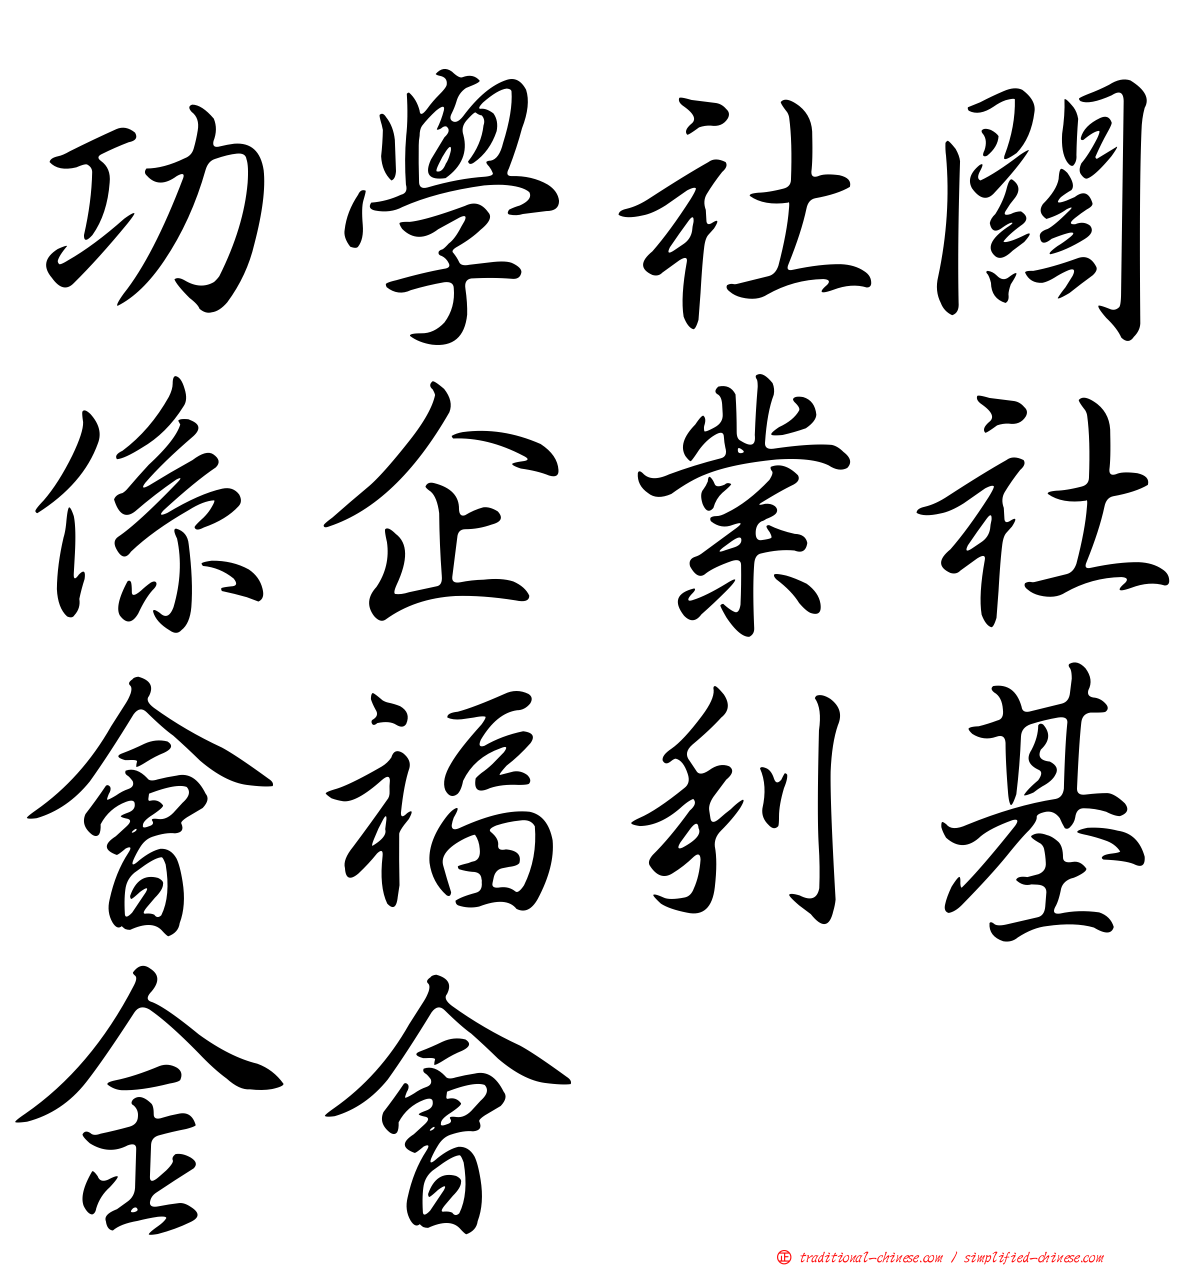 功學社關
係企業社
會福利基
金會
正 traditional-chinese.com / simplified-chinese.com